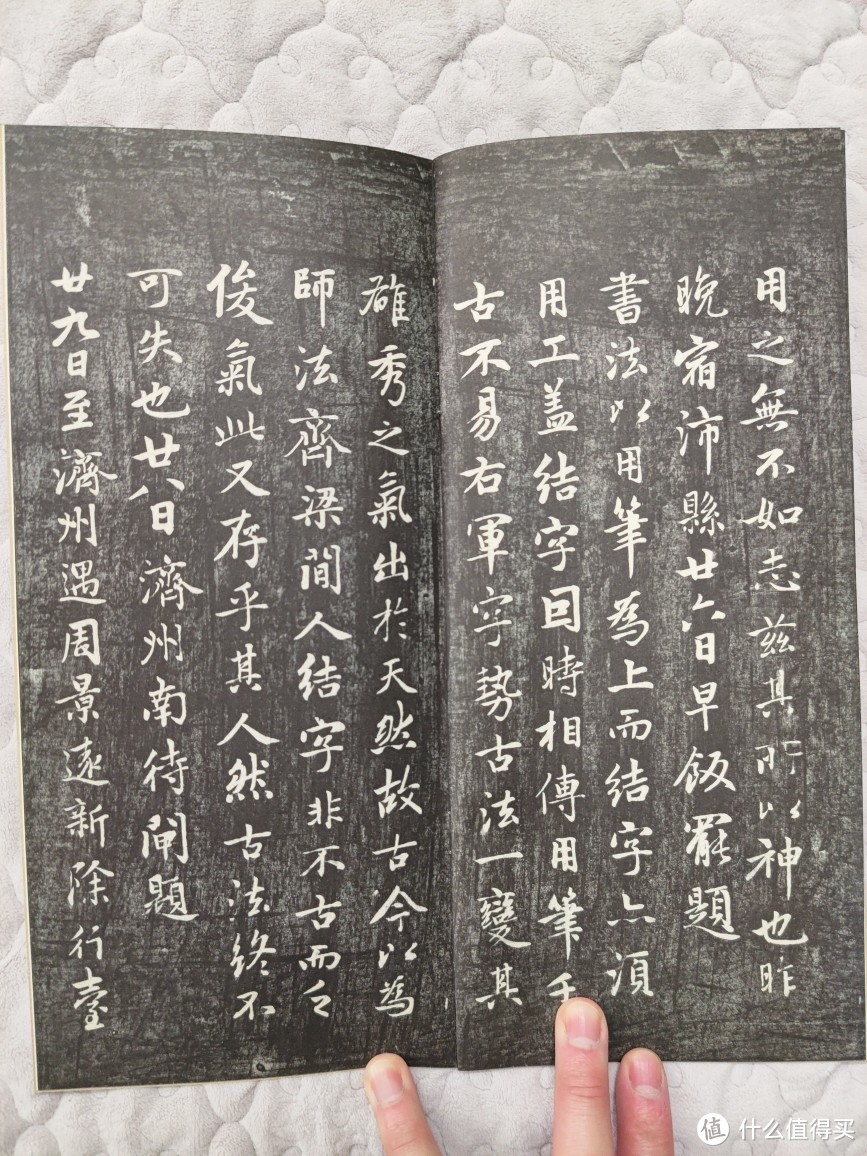 用之無不如志兹其所以神也昨
晚宿沛縣廿六日早飯罷題
書法以用筆為上而結字亦須
用工盖結字因時相傳用筆千
古不易右軍字勢古法一變其
雄秀之氣出於天然故古今以為
師法齊梁間人結字非不古而乏
俊氣此又存乎其人然古法終不
可失也廿八日濟州南待閘題
廿九日至濟州遇周景遠新除行臺
值 什么值得买